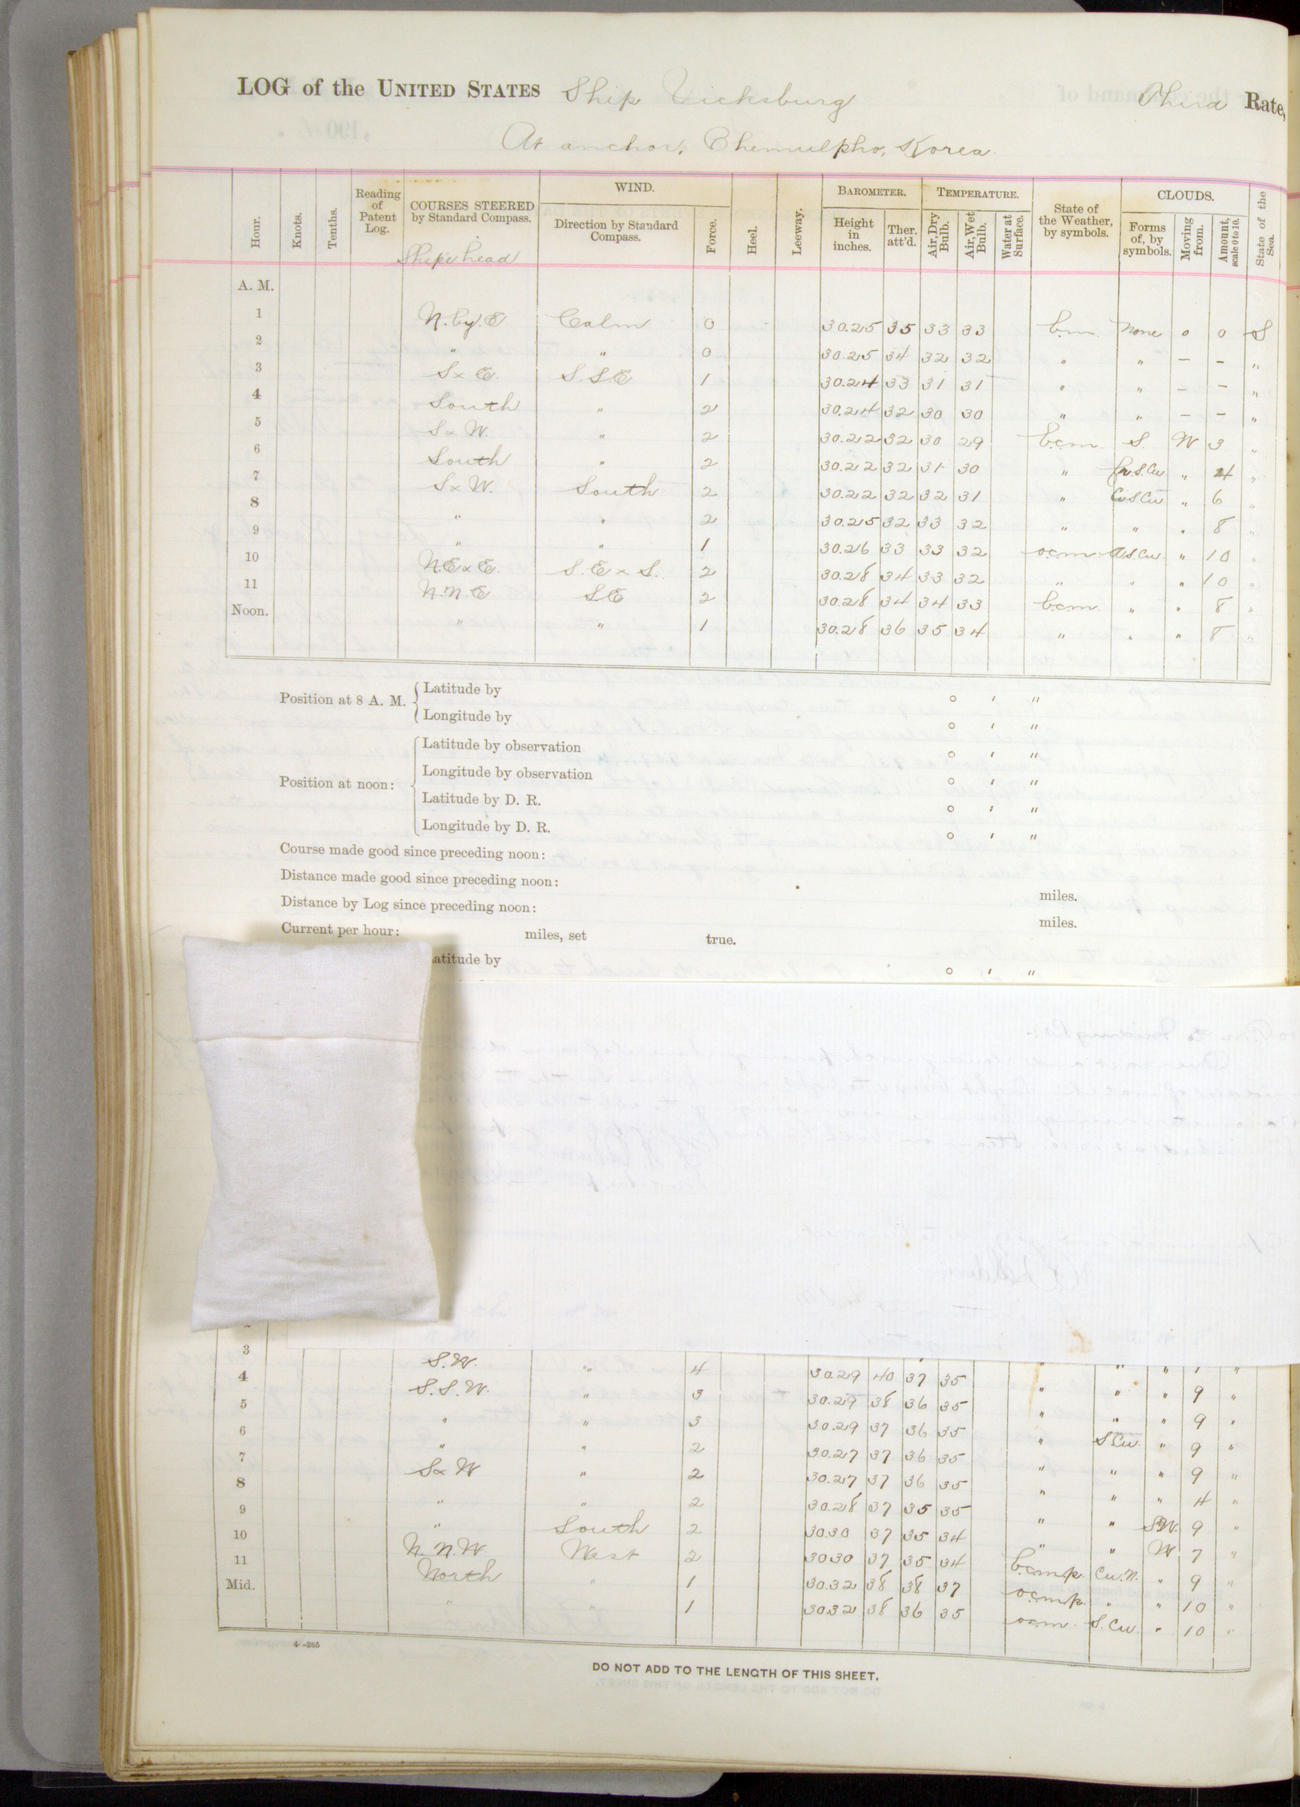 LOG of the UNITED STATES Ship Vicksburg Third Rate,
At anchor, Chemulpho, Korea.
Hour. Knots. Tenths. Reading of Patent Log. COURSES STEERED by Standard Compass. WIND. Direction by Standard Compass. Force. Heel. Leeway. BAROMETER. Height in inches. Ther. att'd. TEMPERATURE. Air, Dry Bulb. Air, Wet Bulb. Water at Surface. State of the Weather, by symbols. CLOUDS. Forms of, by symbols. Moving from. Amount, scale 0 to 10. State of the Sea.
Ship's head
A. M.
1 N. by. E Calm 0 30.25 35 33 33 b.m. None 0 0 S
2 " " 0 30.25 34 32 32 " " – – "
3 S x E. S.S.E 1 30.24 33 31 31 " " – – "
4 South " 2 30.24 32 30 30 " " – – "
5 S x W. " 2 30.22 32 30 29 b.c.m S. W 3 "
6 South " 2 30.22 32 31 30 " S.Cu " 4 "
7 S x W. South 2 30.22 32 32 31 " S.Cu " 6 "
8 " " 2 30.25 32 33 32 " " " 8 "
9 " " 1 30.26 33 33 32 o.c.m S.Cu. " 10 "
10 N.E x E. S.E x S. 2 30.28 34 33 32 " " " 10 "
11 N.N.E SE 2 30.28 34 34 33 b.c.m " " 8 "
Noon. " " 1 30.28 36 35 34 " " " 8 "
Position at 8 A. M. Latitude by ° ′ ″
Longitude by ° ′ ″
Position at noon: Latitude by observation ° ′ ″
Longitude by observation ° ′ ″
Latitude by D. R. ° ′ ″
Longitude by D. R. ° ′ ″
Course made good since preceding noon:
Distance made good since preceding noon: miles.
Distance by Log since preceding noon: miles.
Current per hour: miles, set true.
atitude by ° ′ ″
3 S.W. " 4 30.29 40 37 35 " " "
4 S.S.W. " 3 30.29 38 36 35 " " " 9 "
5 " " 3 30.29 37 36 35 " " " 9 "
6 " " 2 30.27 37 36 35 " S Cu. " 9 "
7 S x W " 2 30.27 37 36 35 " " " 9 "
8 " " 2 30.28 37 35 35 " " " 4 "
9 " South 2 30.30 37 35 34 " " SW. 9 "
10 N. N.W. West 2 30.30 37 35 34 " " W 7 "
11 North " 1 30.32 38 38 37 b.c.m.p. Cu.N. " 9 "
Mid. " 1 30.32 38 36 35 o.c.m.p. " " 10 "
o.c.m. S.Cu. " 10 "
4—265
DO NOT ADD TO THE LENGTH OF THIS SHEET.